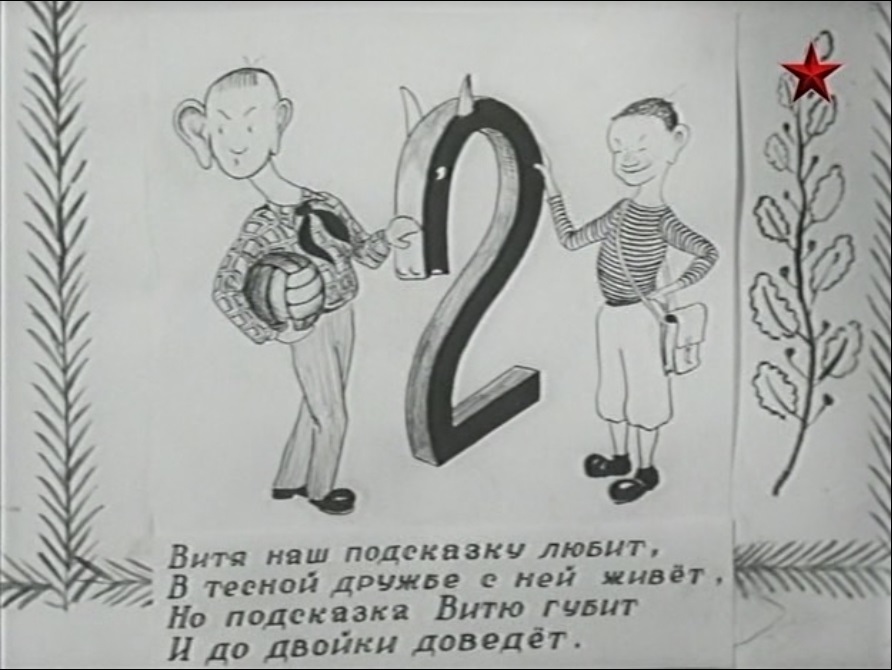 2
Витя наш подсказку любит,
В тесной дружбе с ней живёт,
Но подсказка Витю губит
И до двойки доведёт.